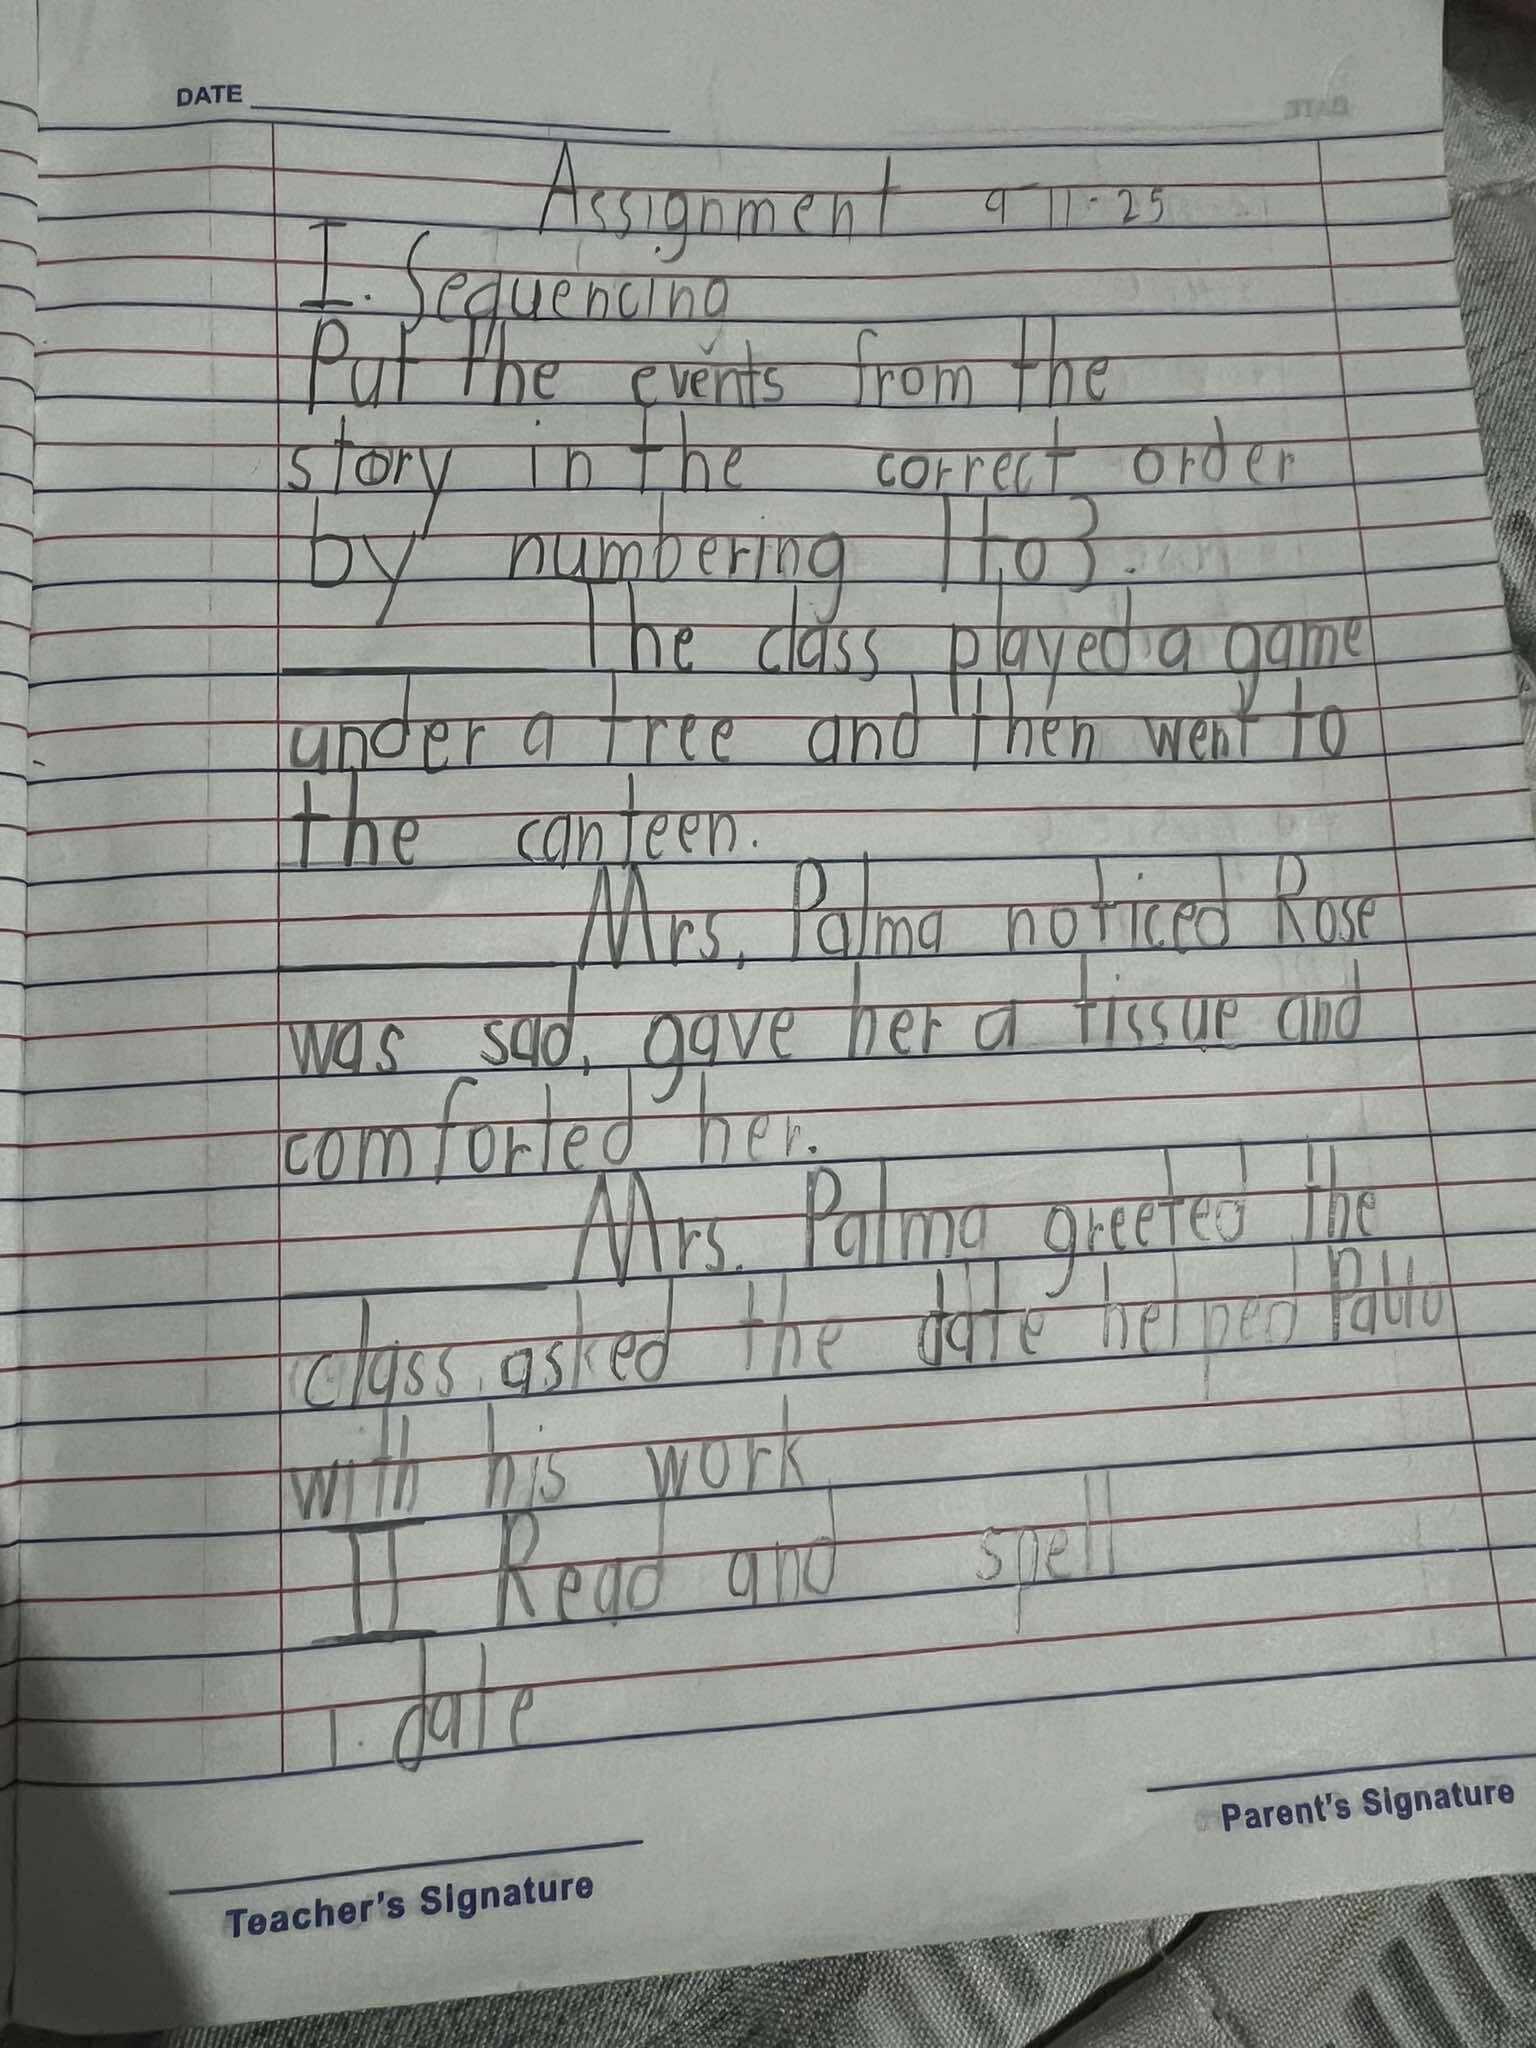 DATE
Assignment 9-11-25
I. Sequencing
Put the events from the
story in the correct order
by numbering 1 to 3.
The class played a game
under a tree and then went to
the canteen.
Mrs. Palma noticed Rose
was sad, gave her a tissue and
comforted her.
Mrs. Palma greeted the
class, asked the date helped Pablo
with his work
II Read and spell
1. date
Parent's Signature
Teacher's Signature